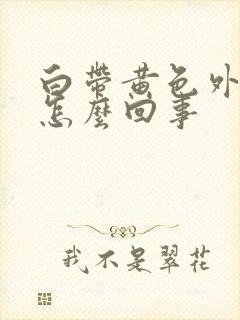 白帶黃色外
怎麼回事
我不是翠花